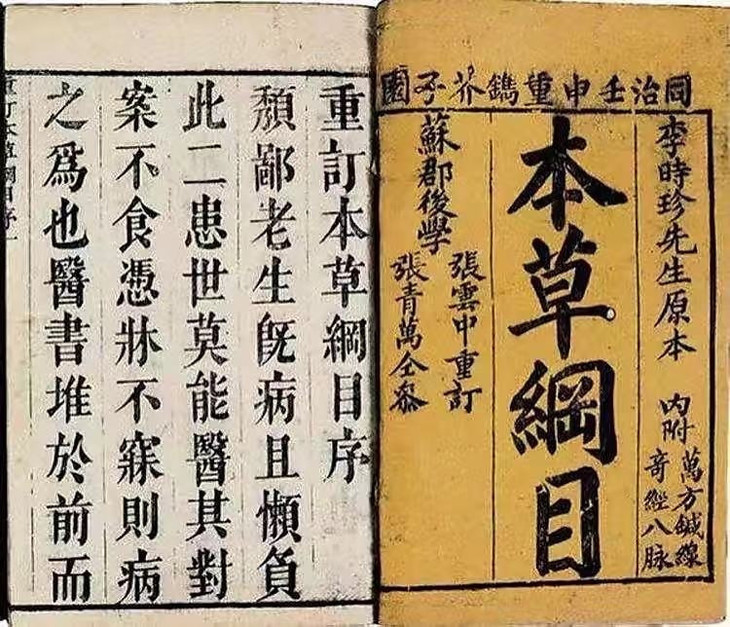 同治壬申重鐫芥子園
李時珍先生原本
內附
萬方鍼線
奇經八脉
本草綱目
張雲中重訂
張青萬仝叅
蘇郡後學
重訂本草綱目序
頽鄙老生旣病且懶負
此二患世莫能醫其對
案不食憑牀不寐則病
之爲也醫書堆於前而
重訂本草綱目序一